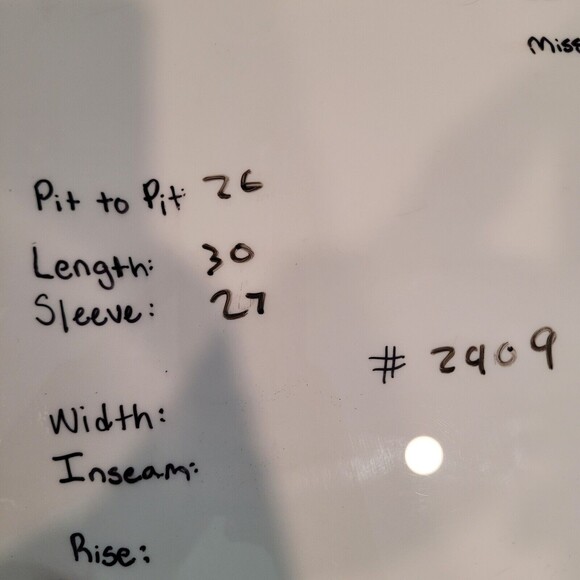 Pit to Pit: 26
Length: 30
Sleeve: 27
# 2909
Width:
Inseam:
Rise: